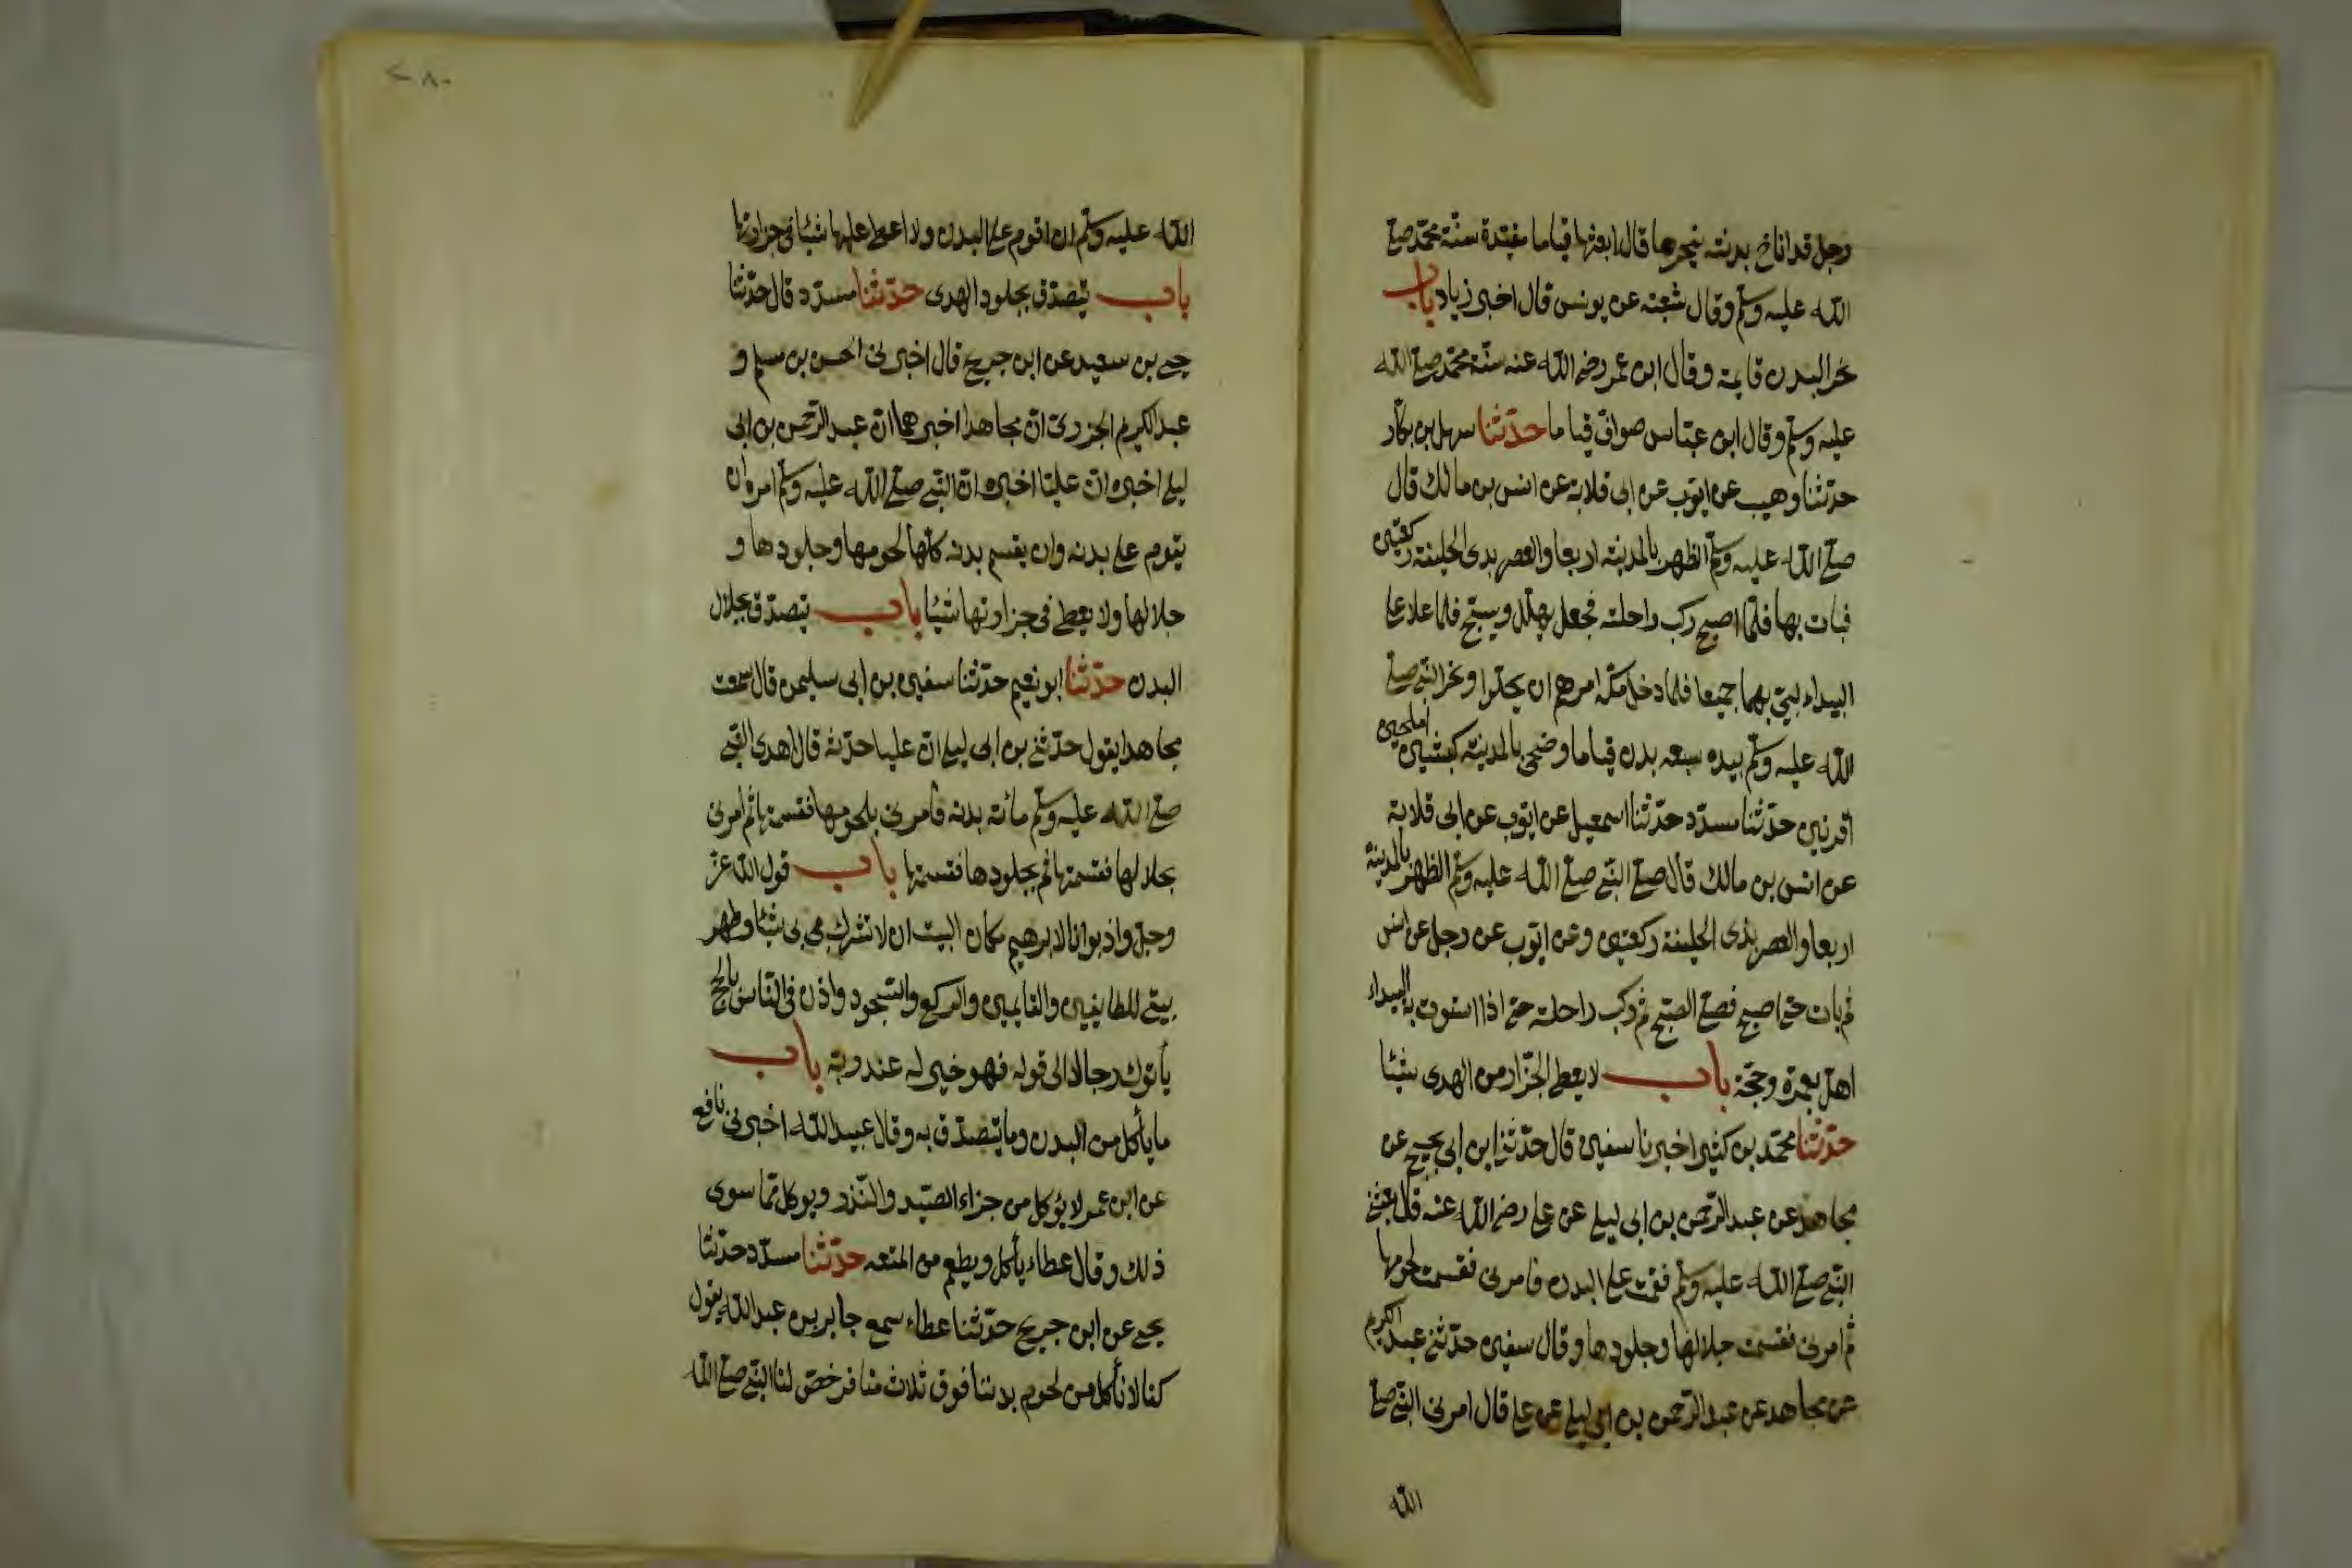 رجل قد اناخ بدنته ينحرها قال ابعثها قياما مقيدة سنة محمد صلى
الله عليه وسلم وقال شعبة عن يونس قال اخبرني زياد باب
نحر البدن قايمة وقال ابن عمر رضى الله عنه سنة محمد صلى الله
عليه وسلم وقال ابن عباس صواف قياما حدثنا سهل بن بكار
حدثنا وهيب عن ايوب عن ابى قلابة عن انس بن مالك قال
صلى الله عليه وسلم الظهر بالمدينة اربعا والعصر بذى الحليفة ركعتين
فبات بها فلما اصبح ركب راحلته فجعل يهلل ويسبح فلما علا على
البيداء لبى بهما جميعا فلما دخل مكة امرهم ان يحلوا ونحر النبى صلى
الله عليه وسلم بيده سبعه بدن قياما وضحى بالمدينة كبشين املحين
اقرنين حدثنا مسدد حدثنا اسمعيل عن ايوب عن ابى قلابة
عن انس بن مالك قال صلى النبى صلى الله عليه وسلم الظهر بالمدينة
اربعا والعصر بذى الحليفة ركعتين وعن ايوب عن رجل عن انس
ثم بات حتى اصبح فصلى الصبح ثم ركب راحلته حتى اذا استوت به البيداء
اهل بعمرة وحجة باب لا يعطى الجزار من الهدى شيئا
حدثنا محمد بن كثير اخبرنا سفين قال حدثنى ابن ابى نجيح عن
مجاهد عن عبد الرحمن بن ابى ليلى عن على رضى الله عنه قال بعثنى
النبى صلى الله عليه وسلم فقمت على البدن فامرنى فقسمت لحومها
ثم امرنى فقسمت جلالها وجلودها وقال سفين حدثنى عبد الكريم
عن مجاهد عن عبد الرحمن بن ابى ليلى عن على قال امرنى النبى صلى
الله
٢٨٠
الله عليه وسلم ان اقوم على البدن ولا اعطى عليها شيئا فى جزارتها
باب يتصدق بجلود الهدى حدثنا مسدد قال حدثنا
يحيى بن سعيد عن ابن جريج قال اخبرنى الحسن بن مسلم و
عبد الكريم الجزرى ان مجاهدا اخبرهما ان عبد الرحمن بن ابى
ليلى اخبره ان عليا اخبره ان النبى صلى الله عليه وسلم امره ان
يقوم على بدنه وان يقسم بدنه كلها لحومها وجلودها و
جلالها ولا يعطى فى جزارتها شيئا باب يتصدق بجلال
البدن حدثنا ابو نعيم حدثنا سفين بن ابى سليمن قال سمعت
مجاهدا يقول حدثنى بن ابى ليلى ان عليا حدثه قال اهدى النبى
صلى الله عليه وسلم مائة بدنه فامرنى بلحومها فقسمتها ثم امرنى
بجلالها فقسمتها ثم بجلودها فقسمتها باب قول الله عز
وجل واذ بوانا لابرهيم مكان البيت ان لا تشرك بى شيئا وطهر
بيتى للطايفين والقايمين والركع والسجود واذن فى الناس بالحج
يأتوك رجالا الى قوله فهو خير له عند ربه باب
ما يأكل من البدن وما يتصدق به وقال عبيد الله اخبرنى نافع
عن ابن عمر لا يؤكل من جزاء الصيد والنذر ويوكل مما سوى
ذلك وقال عطاء يأكل ويطعم من المتعه حدثنا مسدد حدثنا
يحيى عن ابن جريج حدثنا عطاء سمع جابر بن عبد الله يقول
كنا لا نأكل من لحوم بدننا فوق ثلاث منا فرخص لنا النبى صلى الله